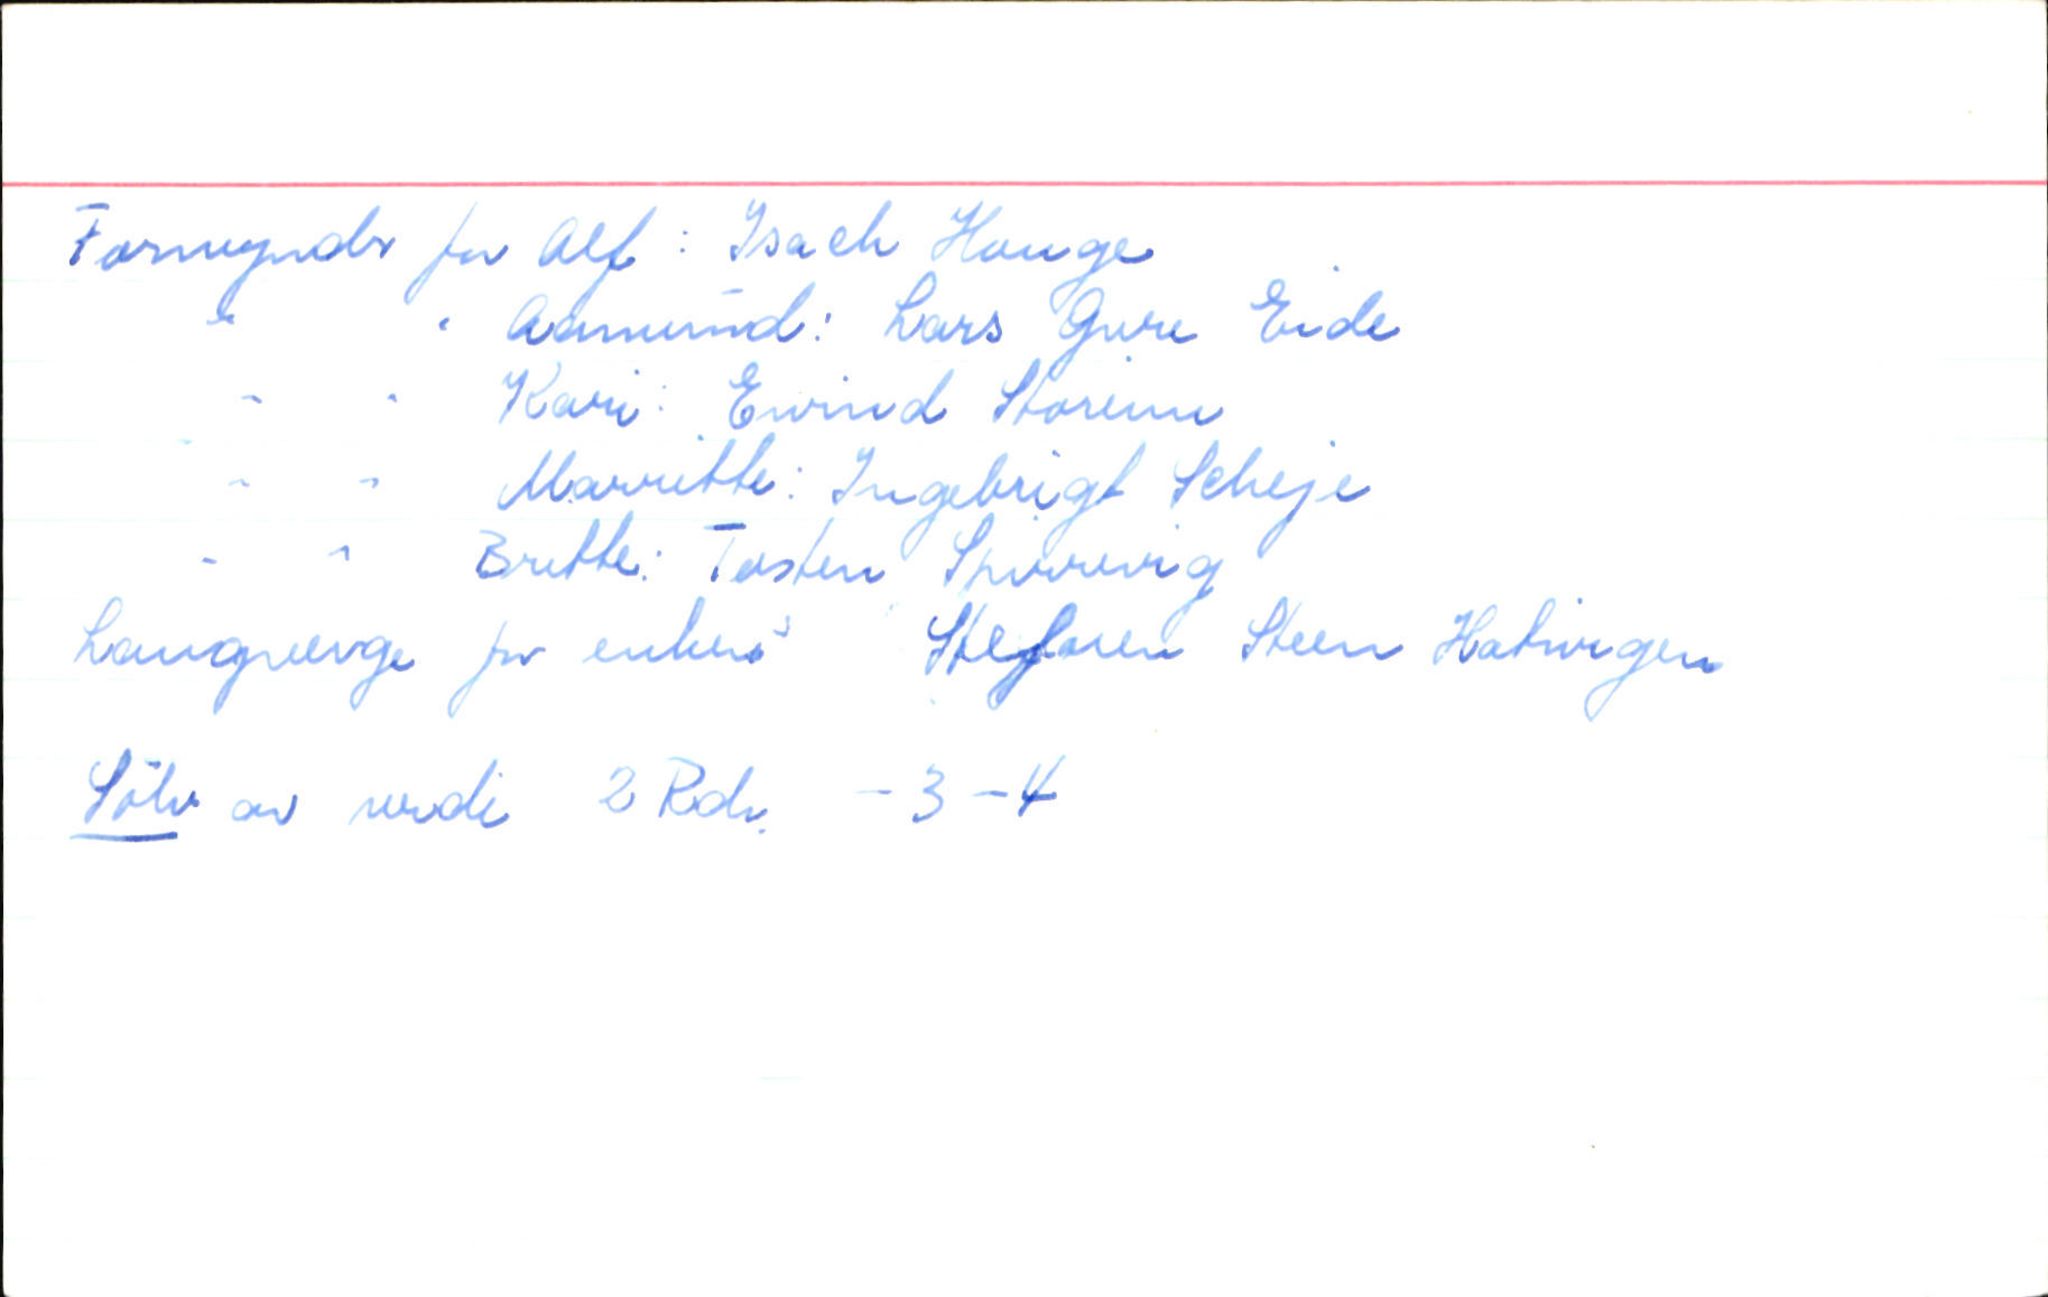 Formynder for Alf: Isach Houge
" " Aamund: Lars Gure Eide
" " Kari: Ewind Storim
" " Marritte: Ingebrigt Scheje
" " Britte: Tosten
Laugverge for enken Steffaren Steen Hatwigen
Sölv av verdi 2 Rdr. - 3 - 4